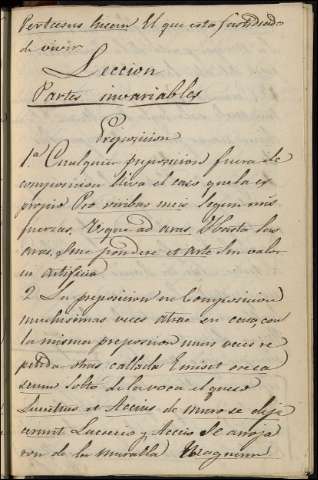 Pertaesus lucem El que está fastidiado
de vivir
Leccion
Partes invariables
Preposicion
1ª Cualquier preposicion fuera de
composicion lleva el caso que la es
propio Pro viribus meis segun mis
fuerzas, Usque ad aras Hasta las
aras, Sine pondere et arte Sin valor
ni artificio
2 La preposicion en composicion
muchisimas veces atrae en caso, con
la misma preposicion unas veces re
petida otras callada Emisit ore ca
seum Soltó de la boca el queso
Lucretius et Accius de muro se deje
cerunt Lucrecio y Accio se arroja
ron de la muralla Magnum